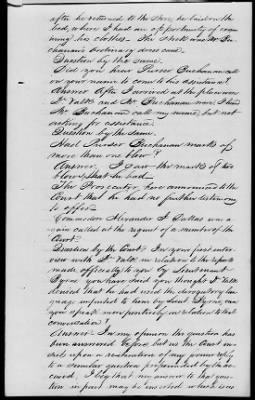 after he returned to the store, he laid on the
bed, where I had an opportunity of exa
mining his clothes. The stick was Mr Bu
chanan's ordinary dress cane.
Question by the same.
Did you hear Purser Buchanan call
on your name to come to his assistance?
Answer After I arrived at the place where
Mr Talis and Mr Buchanan were, I heard
Mr Buchanan call my name, but not
asking for assistance.
Question by the same.
Had Purser Buchanan marks of
more than one blow?
Answer. I saw the marks of two
blows, that he had.
The Prosecutor, here announced to the
Court that he had no further testimony
to offer.
Commodore Alexander J. Dallas was a
gain called at the request of a member of the
Court.
Question by the Court: In your first inter
view with in relation to the reports
made officially to you by Lieutenant
Byrne, you have said you thought
denied that he had used the derogatory lan
guage imputed to him by Lieut Byrne, can
you speak more positively in relation to that
conversation?
Answer. In my opinion the question has
been answered before, but as the Court in
sists upon a reiteration of my
to a similar question propounded by the ac
cused, I beg that my answer to that ques
tion in part may be inserted which is as